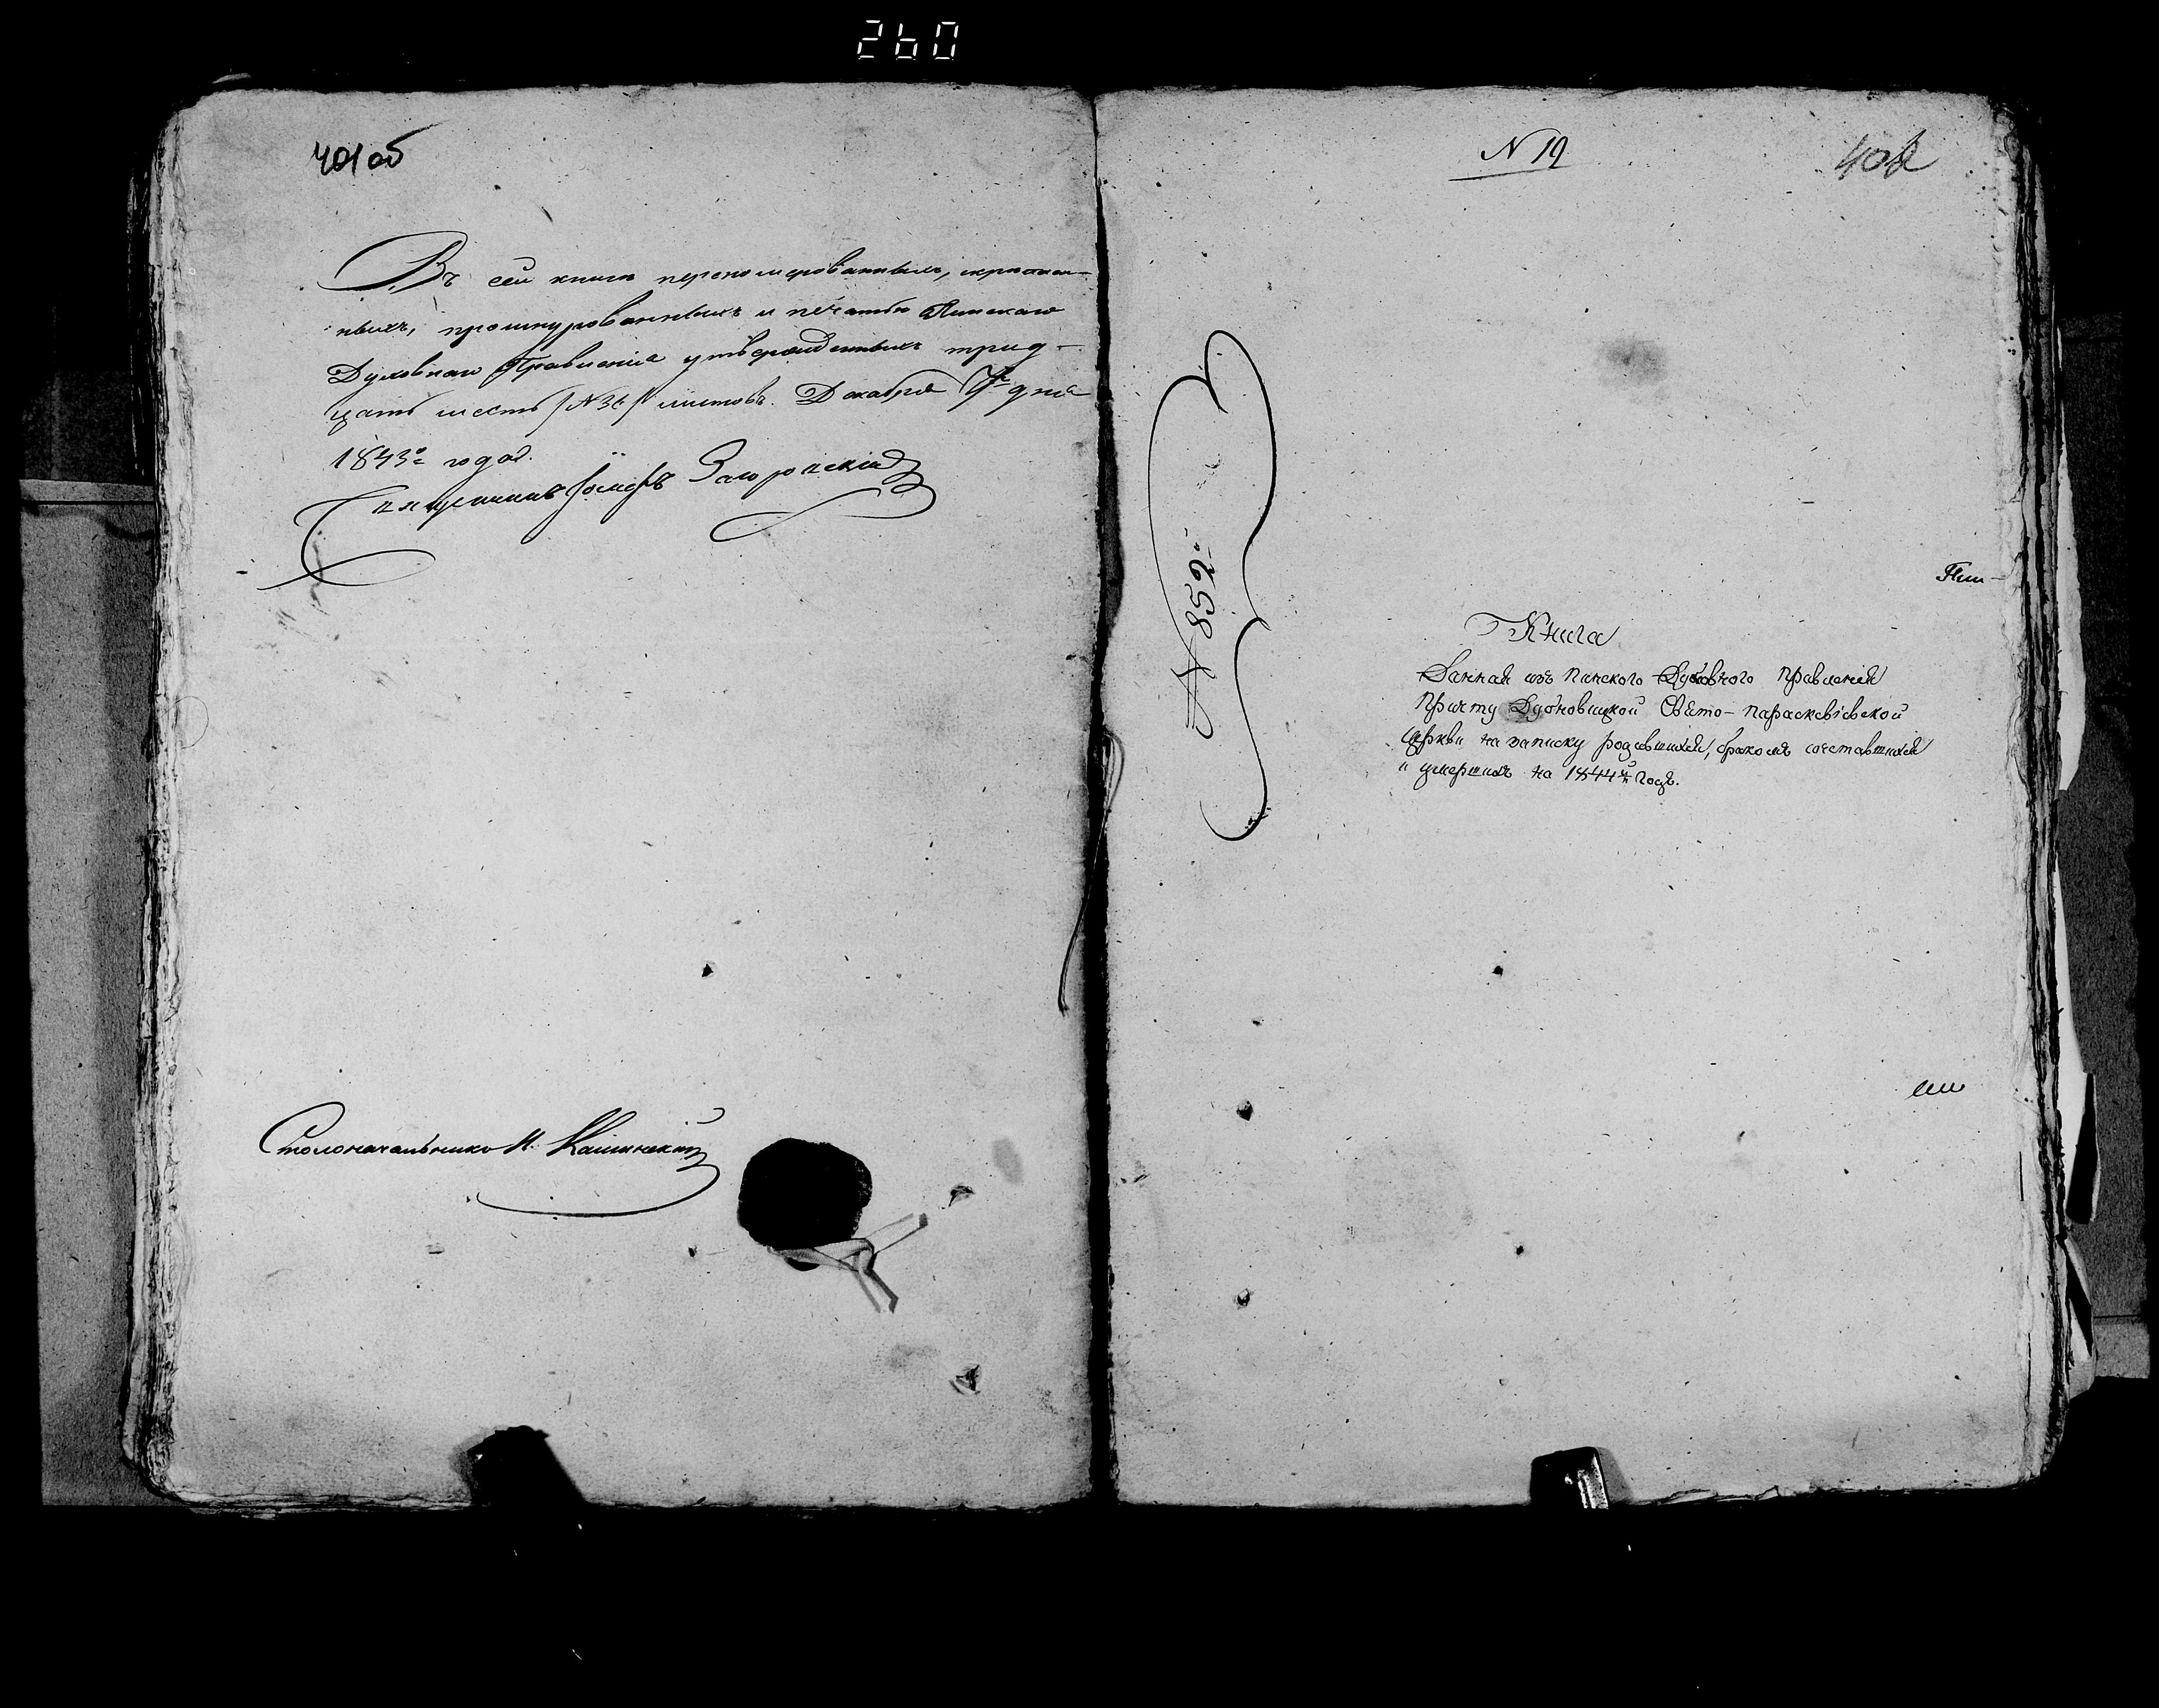 260
401 об
Въ сей книгѣ перенумерованныхъ, скрѣплен-
ныхъ, прошнурованныхъ и печатью Пинскаго
Духовнаго Правленія утвержденныхъ трид-
цать шесть /№ 36/ листовъ. Декабря 7 дня
1843го года.
Священникъ Іосифъ Загоровскій
Столоначальникъ Н.
N 19
402
№ 8592
Пин-
Книга
Данная изъ Пинского Духовного Правленія
Причту Дубновицкой Свято-Параскевіевской
Церкви на записку родившихся, бракомъ сочетавшихся
и умершихъ на 1844й годъ.